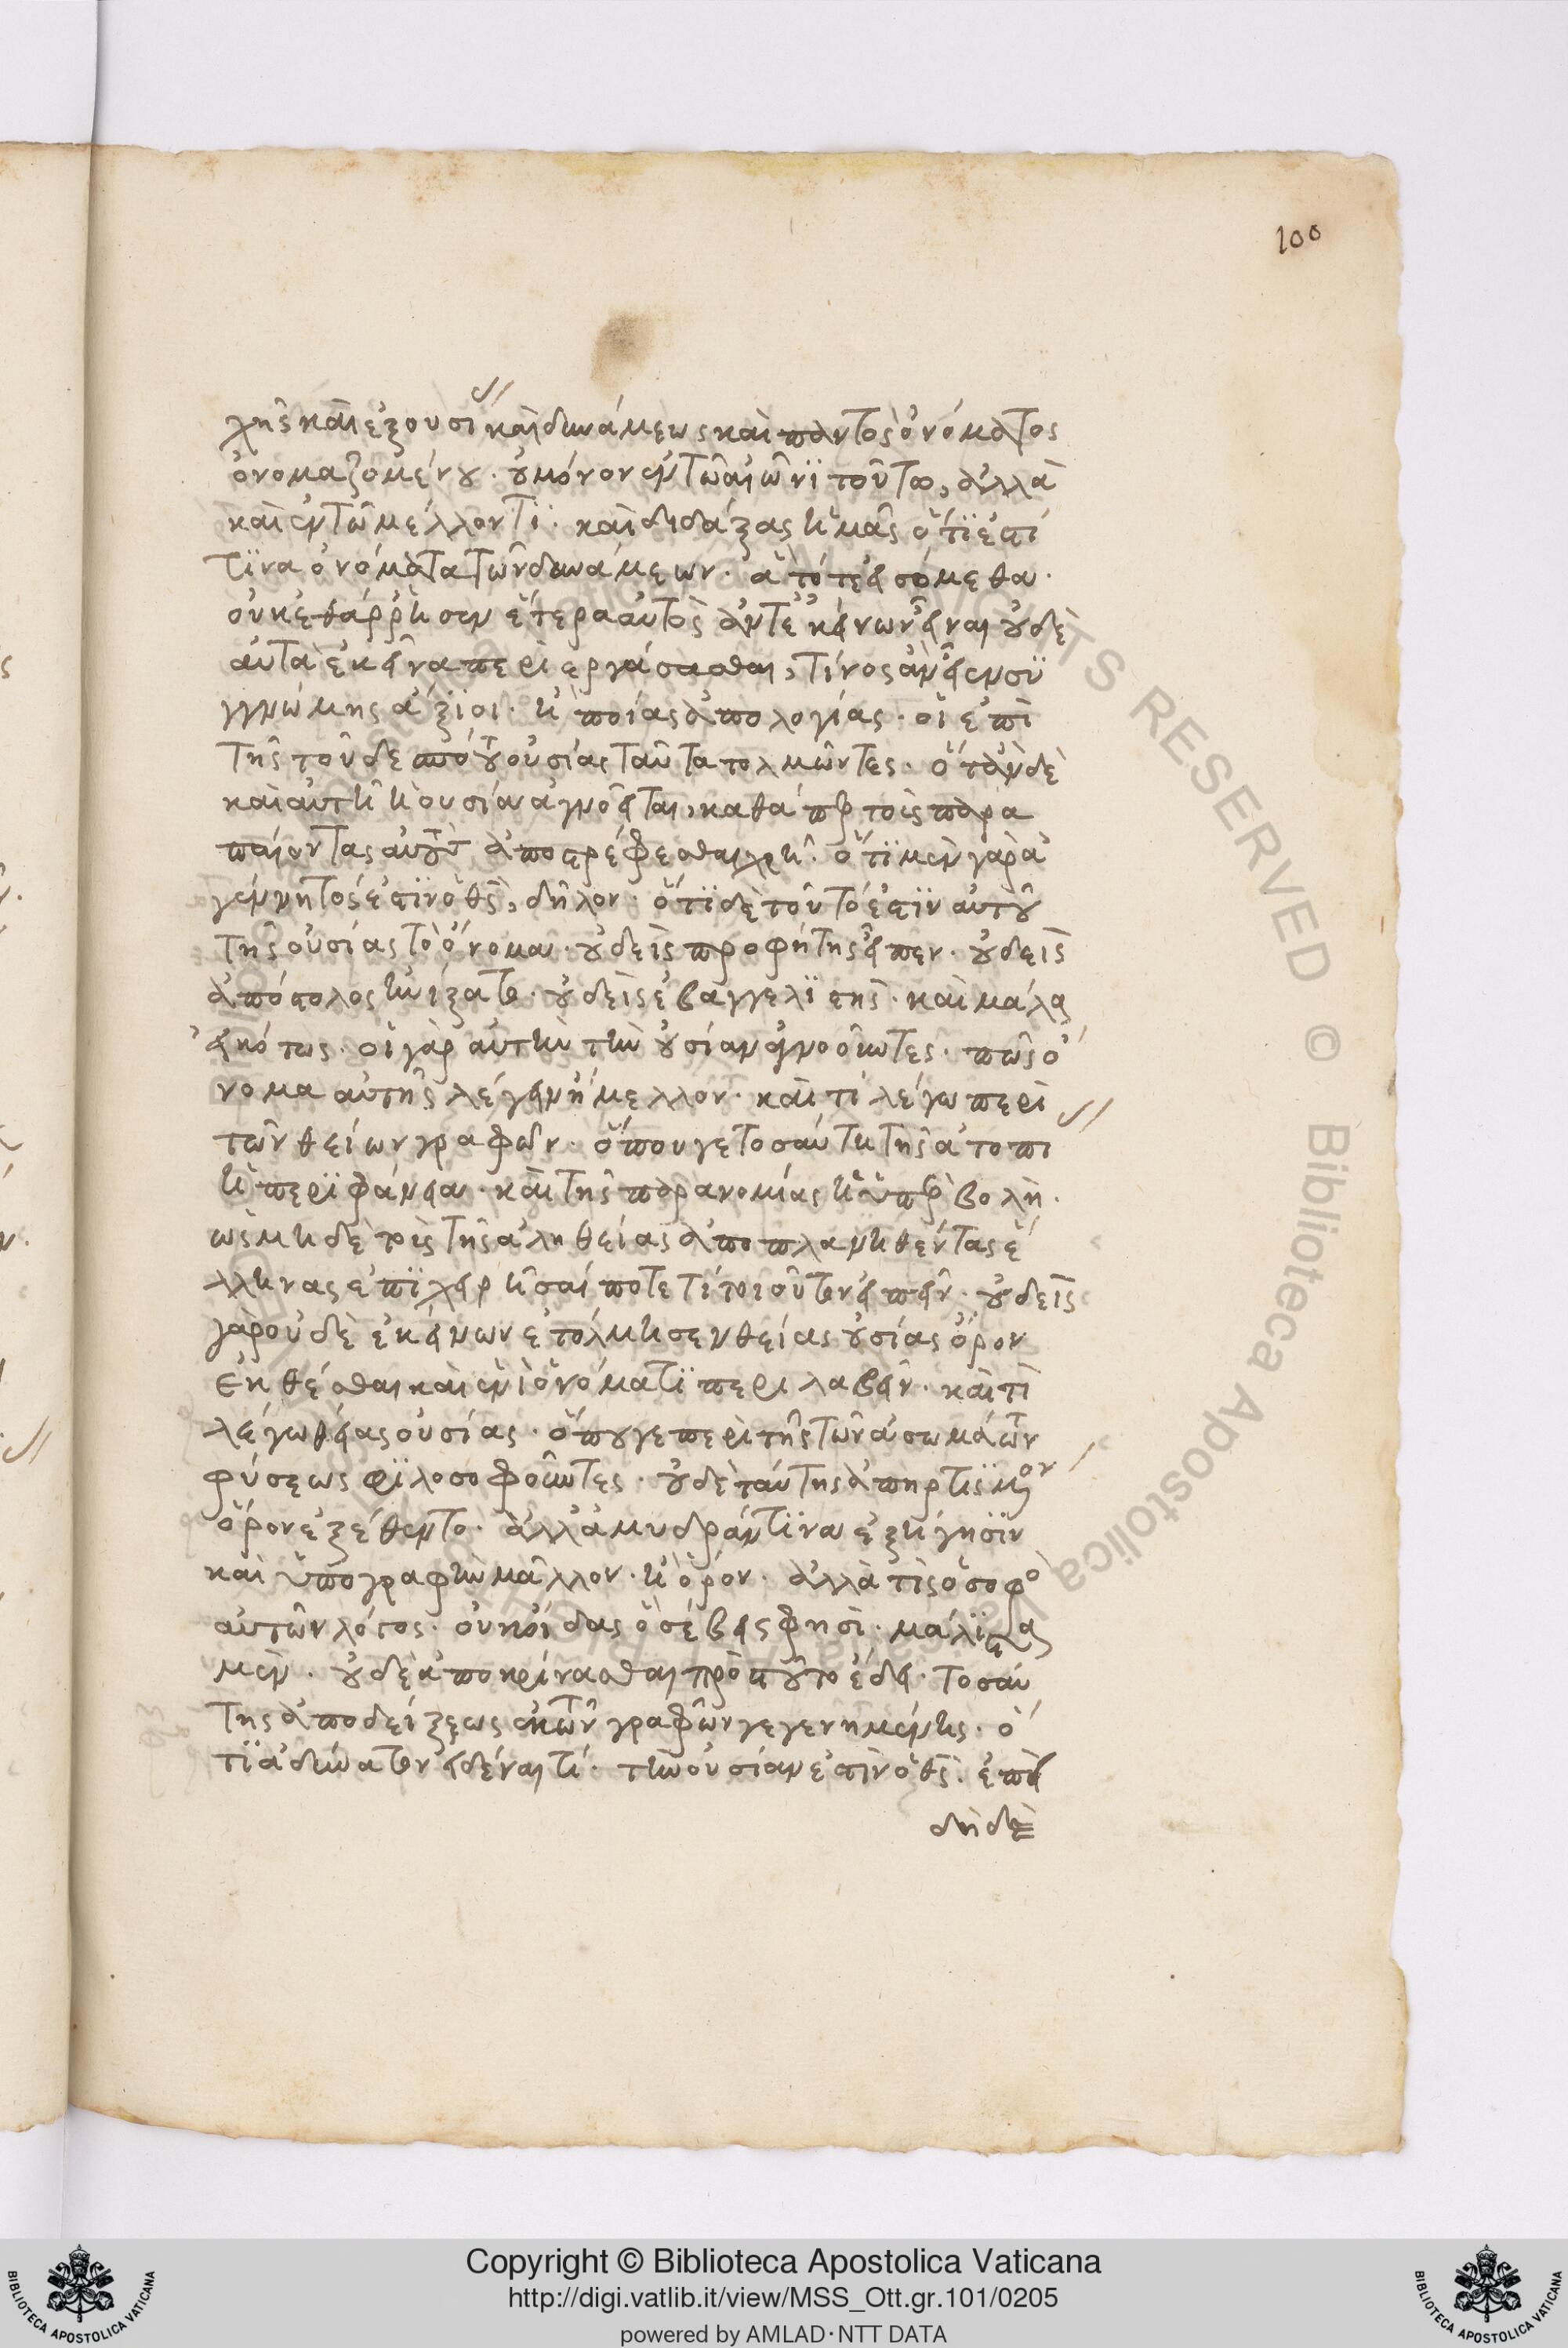 100
χῆς καὶ ἐξουσί καὶ δυνάμεως καὶ παντὸς ὀνόματος
ὀνομαζομένου. οὐ μόνον ἐν τῶ αἰῶνϊ τούτω, ἀλλὰ
καὶ ἐν τῶ μέλλοντϊ. καὶ διδάξας ἡμᾶς ὅτϊ ἐστί
τϊνα ὀνόματα τῶν δυνάμεων. ἃ τότε εἰσόμεθα.
οὐκ ἐθάρρησεν ἕτερα αὐτὸς ἀντ' ἐκείνων εἶναι οὐδὲ
αὐτὰ ἐκεῖνα περιεργάσασθαι, τίνος ἂν εἶεν συ
γγνώμης ἄξϊοι. ἢ ποίας ἀπολογίας. οἱ ἐπὶ
τῆς τοῦ δεσπότου οὐσίας ταῦτα τολμῶντες. ὅταν δὲ
καὶ αὐτὴ ἡ οὐσία ἀγνοεῖται, καθάπερ τοὺς παρα
παίοντας αὐτοὺς ἀποστρέφεσθαι χρή. ὅτϊ μὲν γὰρ ἀ
γέννητός ἐστϊν ὁ θς, δῆλον. ὅτϊ δὲ τοῦτό ἐστϊν αὐτοῦ
τῆς οὐσίας τὸ ὄνομα. οὐδεὶς προφήτης εἶπεν. οὐδεὶς
ἀπόστολος ἠνίξατο. οὐδεὶς εὐαγγελϊστής. καὶ μάλα
εἰκότως. οἱ γὰρ αὐτὴν τὴν οὐσίαν ἀγνοοῦντες. πῶς ὄ
νομα αὐτῆς λέγειν ἤμελλον. καὶ τί λέγω περὶ
τῶν θείων γραφῶν. ὅπου γε τοσαύτη τῆς ἀτοπί
ἡ περϊφάνεια. καὶ τῆς παρανομίας ἡ ὑπερβολὴ.
ὡς μηδὲ τοὺς τῆς ἀληθείας ἀποπλανηθέντας ἕ
λληνας ἐπϊχειρῆσαί ποτέ τι τοιοῦτον εἰπεῖν. οὐδεὶς
γὰρ οὐδὲ ἐκείνων ἐτόλμησεν θείας οὐσίας ὅρον
ἐκθέσθαι καὶ ἑνὶ ὀνόματϊ περιλαβεῖν. καὶ τί
λέγω θείας οὐσίας. ὅπου γε περὶ τῆς τῶν ἀσωμάτων
φύσεως φϊλοσοφοῦντες. οὐδὲ ταύτης ἀπηρτισμένον
ὅρον ἐξέθεντο. ἀλλ' ἀμυδράν τϊνα ἐξήγησϊν
καὶ ὑπογραφὴν μᾶλλον. ἢ ὅρον. ἀλλὰ τίς ὁ σοφὸς
αὐτῶν λόγος. οὐκ οἶδας ὃ σέβεις φησὶ. μάλϊστα
μὲν. οὐδὲ ἀποκρίνασθαι πρὸς τοῦτο ἔδει. τοσαύ
της ἀποδείξεως ἐκ τῶν γραφῶν γεγενημένης. ὅ
τϊ ἀδύνατον εἰδέναι τί. τὴν οὐσίαν ἐστὶν ὁ θς. ἐπει
δὴ δὲ